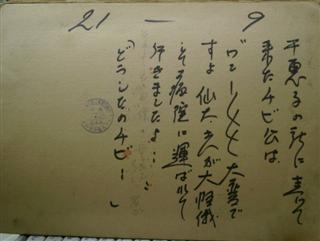 21 — 9
千恵子の所に走って
来たチビ公は
大変で
すよ 仙太さんが大怪我
病院に運ばれて
行きましたよ…」
「どうしたのチビー」